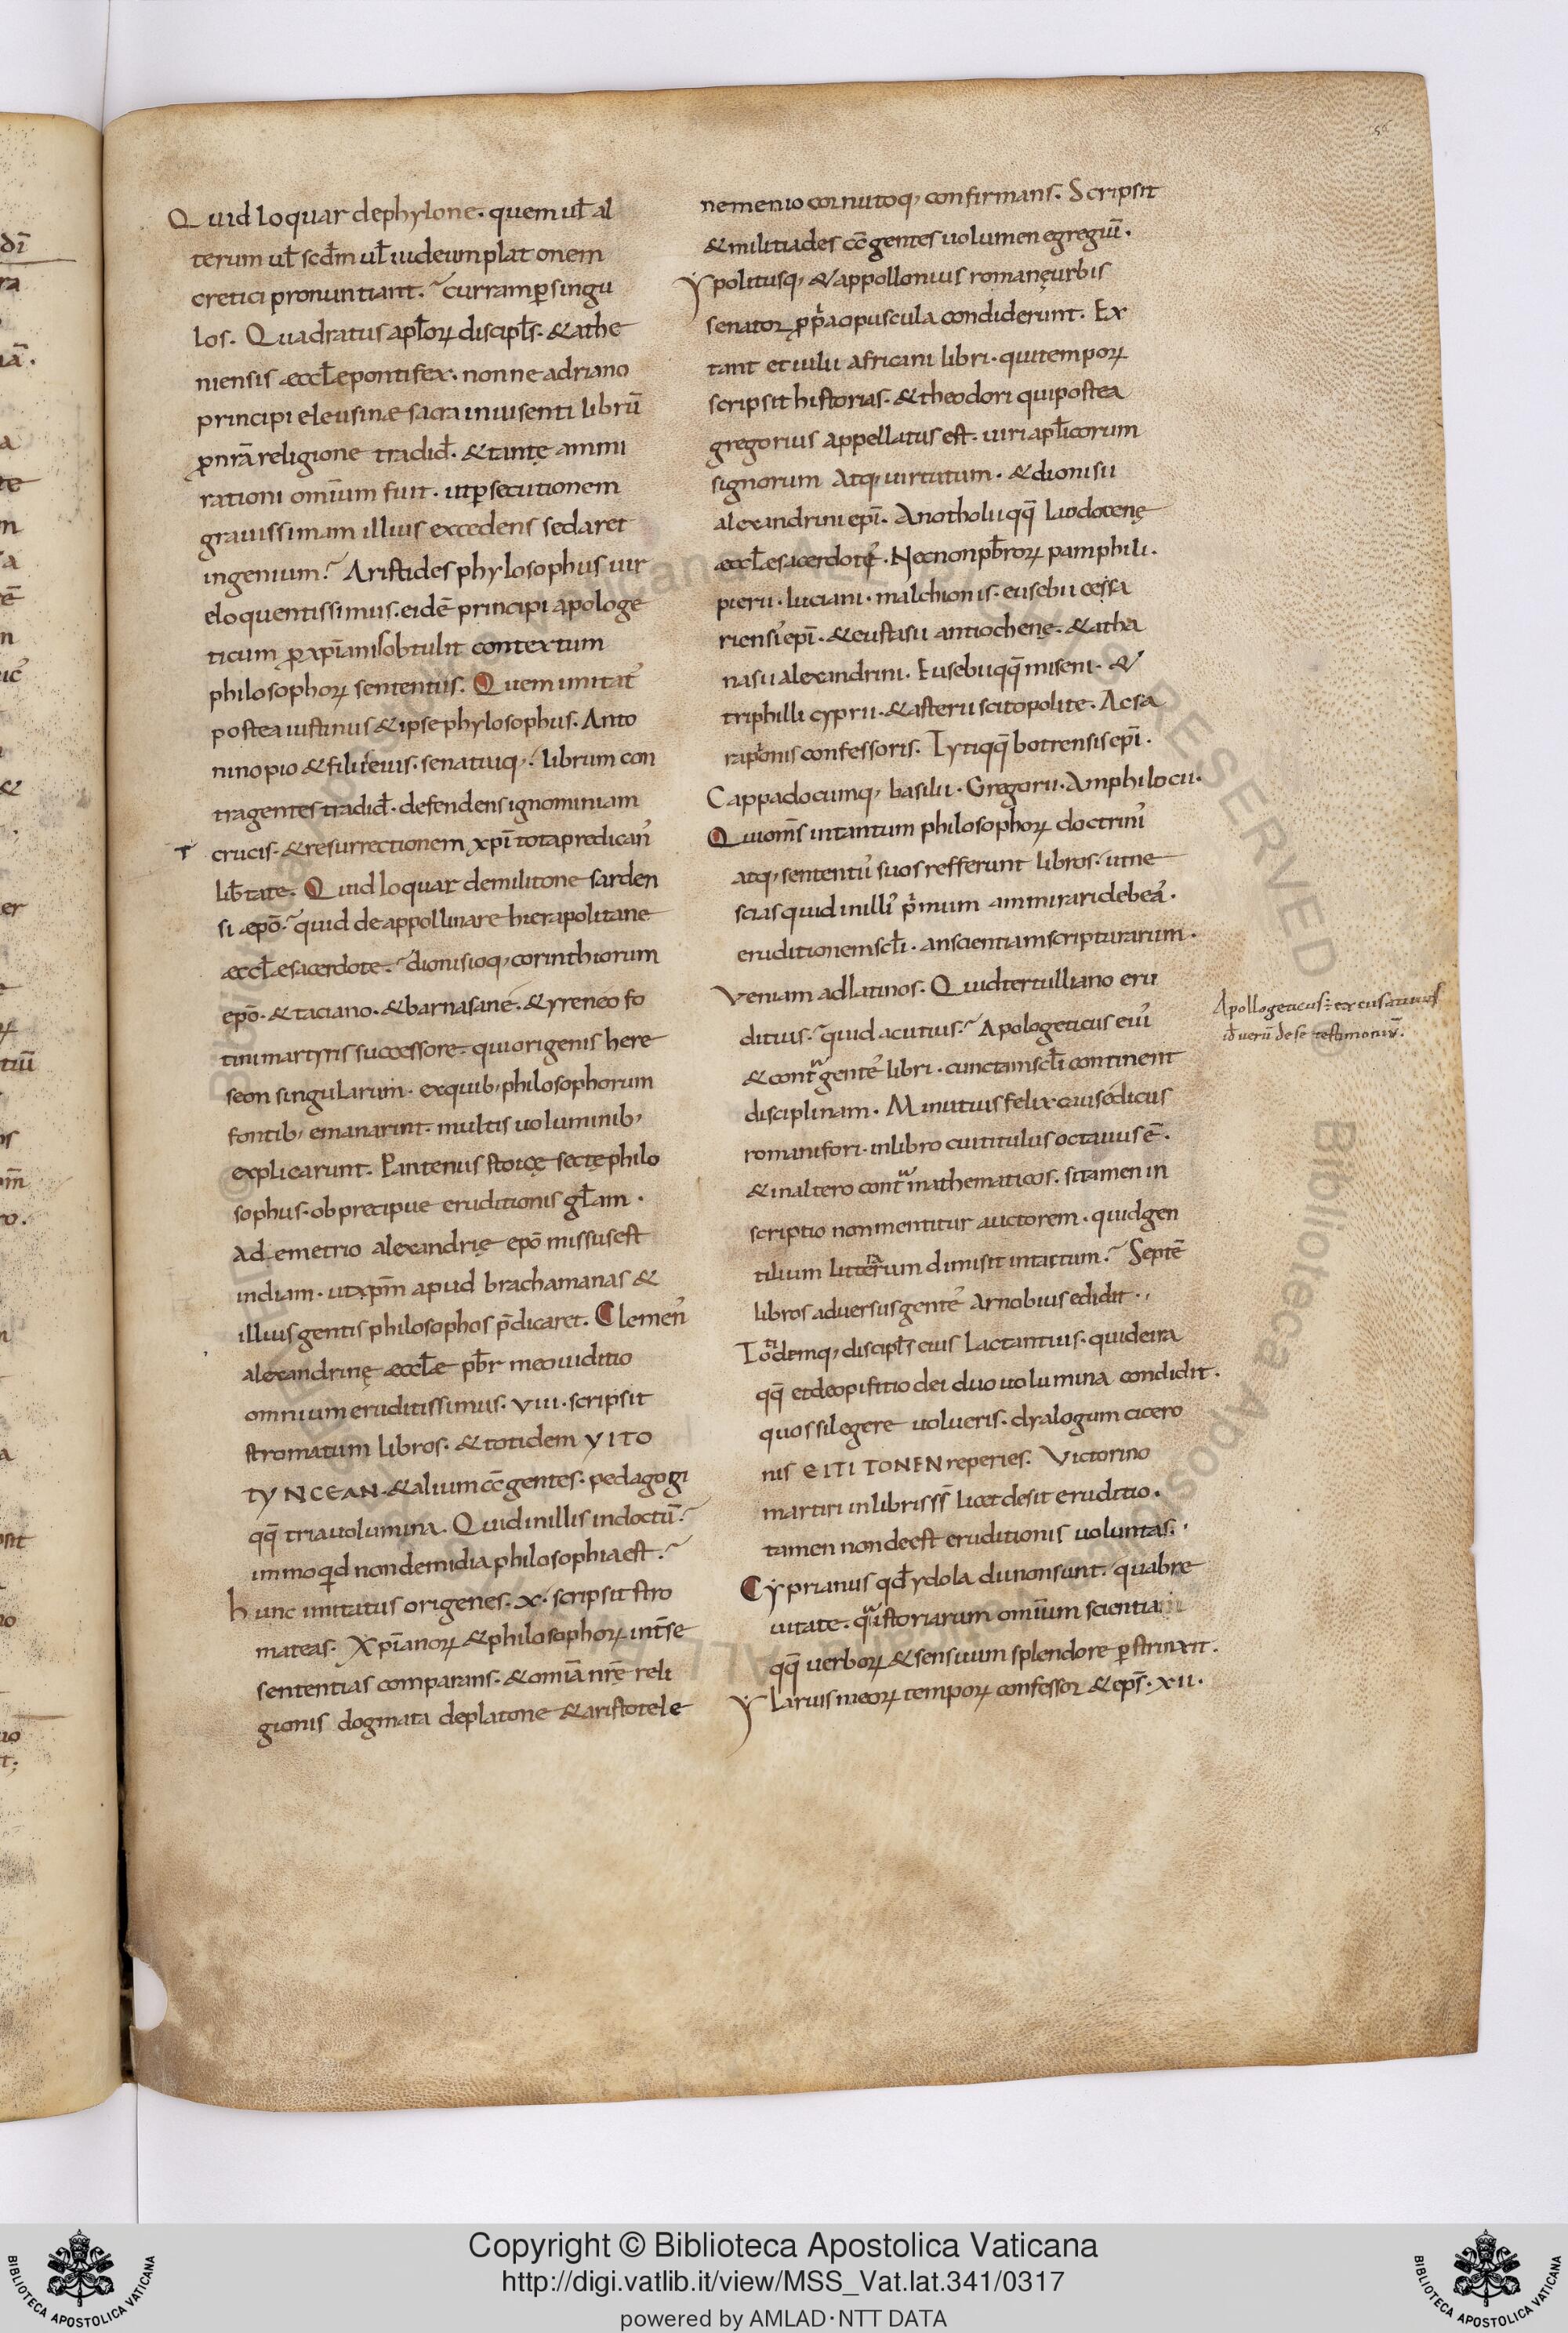 Quid loquar de phylone· quem ul̄ al
terum ul̄ scd̄m ul̄ iudeum plat onem
cretici pronuntiant. curram ꝑ singu
los. Quadratus apl̄oꝝ discipl̄s· & athe
niensis æccl̄e pontifex· nonne adriano
principi eleusinæ sacra inuisenti librū
ꝓ nrā religione tradid̄· & tantę ammi
rationi omīum fuit· ut ꝑsecutionem
grauissimam illius excedens sedaret
ingenium? Aristides phylosophus uir
eloquentissimus· eidē principi apologe
ticum ꝓ xp̄ianis obtulit contextum
philosophoꝝ sententiis. Quem imitat᾽
postea iustinus & ipse phylosophus. Anto
nino pio & filiis eius· senatuiq; librum con
tra gentes tradid̄· defendens ignominiam
crucis· & resurrectionem xp̄i tota predican᾽
lib̄tate. Quid loquar de militone sarden
si æpō? quid de appollinare hierapolitane
æccl̄e sacerdote? dionisioq; corinthiorum
epō· & taciano· & barnasane· & yreneo fo
tini martyris successore· qui origenis here
seon singularum· ex quib; philosophorum
fontib; emanarint· multis uoluminib;
explicarunt. Pantenus stoicę sectę philo
sophus· ob precipue eruditionis gl̄am·
A demetrio alexandrię epō missus est
indiam· ut xp̄m apud brachamanas &
illius gentis philosophos p̄dicaret. Clemen᾽
alexandrinę æccl̄e pb̄r meo iuditio
omnium eruditissimus· VIII· scripsit
stromatum libros· & totidem YITO
TYNCEAN· & alium cc̄ gentes· pedagogi
qq̄ tria uolumina. Quid in illis indoctū?
immo qid non de midia philosophia est?
hunc imitatus origenes· X· scripsit stro
mateas. Xp̄ianoꝝ & philosophoꝝ int̄ se
sententias comparans· & omīa nrę̄ reli
gionis dogmata de platone & aristotele
nemenio cornutoq; confirmans. Scripsit
& militiades cc̄ gentes uolumen egregiū·
Ypolitusq; & appollonius romanę urbis
senator ꝓpria opuscula condiderunt. Ex
tant et iulii africani libri· qui tempoꝝ
scripsit historias· & theodori qui postea
gregorius appellatus est· uiri apl̄icorum
signorum atq; uirtutum· & dionisii
alexandrini epī· Anotholii qq̄ luodocenę
æccl̄e sacerdote· Necnon pb̄roꝝ pamphili·
pierii· luciani· malchionis· eusebii cęsa
riensi᾽ epī· & eustasii antiochenę· & atha
nasii alexandrini· Eusebii qq̄ miseni· &
triphilli cyprii· & asterii scitopolite· Ac sa
rapionis confessoris. Tytiqq̄ botrensis epī·
Cappadocumq; basilii· Gregorii· Amphilocii·
Qui om̄s in tantum philosophoꝝ doctrini᾽
atq; sententii᾽ suos refferunt libros· ut ne
scias quid in illi᾽ p̄mum ammirari debea᾽·
eruditionem scl̄i· an scientiam scripturarum·
Veniam ad latinos. Quid tertulliano eru
ditius? quid acutius? Apologeticus eiu᾽
& contra gente᾽ libri· cunctam scl̄i continent
disciplinam· Minutius felix causedicus
romani fori· in libro cui titulus octauus ē·
& in altero contra mathematicos· si tamen in
scriptio non mentitur auctorem· quid gen
tilium litterarum dimisit intactum? Septē
libros aduersus gente᾽ Arnobius edidit·
Totidemq; discipl̄s eius Lactantius· qui de ira
qq̄ et de opifitio dei duo uolumina condidit·
quos si legere uolueris· dyalogum cicero
nis EITITONEN reperies. Victorino
martiri in libris ss̄ licet desit eruditio·
tamen non deest eruditionis uoluntas·
Cyprianus qd̄ ydola dii non sunt· qua bre
uitate· qua istoriarum omīum scientia
qq̄ uerboꝝ & sensuum splendore ꝑstrinxit·
Ylarius meoꝝ tempoꝝ confessor & ep̄s· XII·
Apollogeticus ÷ excusatiuus
id̄ ueru de se testimoniū·
Copyright © Biblioteca Apostolica Vaticana
http://digi.vatlib.it/view/MSS_Vat.lat.341/0317
powered by AMLAD·NTT DATA
BIBLIOTECA APOSTOLICA VATICANA
BIBLIOTECA APOSTOLICA VATICANA